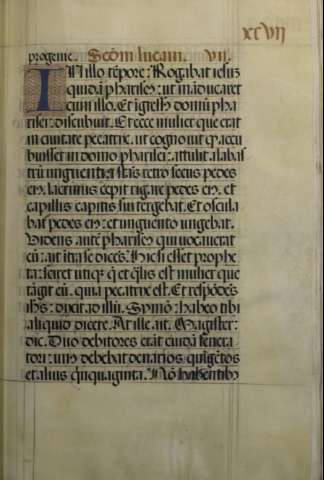 xcvij
progenie. Scd̄m lucam. vij.
IN illo tēpore: Rogabat iesuz
quidā phariseꝰ: ut māducaret
cum illo. Et īgressꝰ domū pha
risei: discubuit. Et ecce mulier que erat
in ciuitate pecatrix. ut cognouit ꝙ accu
buisset in domo pharisei: attulit alabas
trū unguenti: ⁊ stās retro secus pedes
eiꝰ. lacrimis cepit rigare pedes eiꝰ. et
capillis capitis sui tergebat. Et oscula
bat̄ pedes eiꝰ: et unguento ungebat.
Uidens autē phariseꝰ qui uocauerat
eū: ait itra se dicēs: Hic si esset prophe
ta: sciret utiqꝫ q̄ et q̄lis est mulier que
tāgit eū. quia pecatrix est. Et respōdēs
ihs̄: dixit ad illū. Symō: habeo tibi
aliquid dicere. At ille ait. Magister:
dic. Duo debitores erāt cuidā fenera
tori: unꝰ debebat denarios quīgētos
et alius qui̇̄quaginta. Nō habentibꝰ